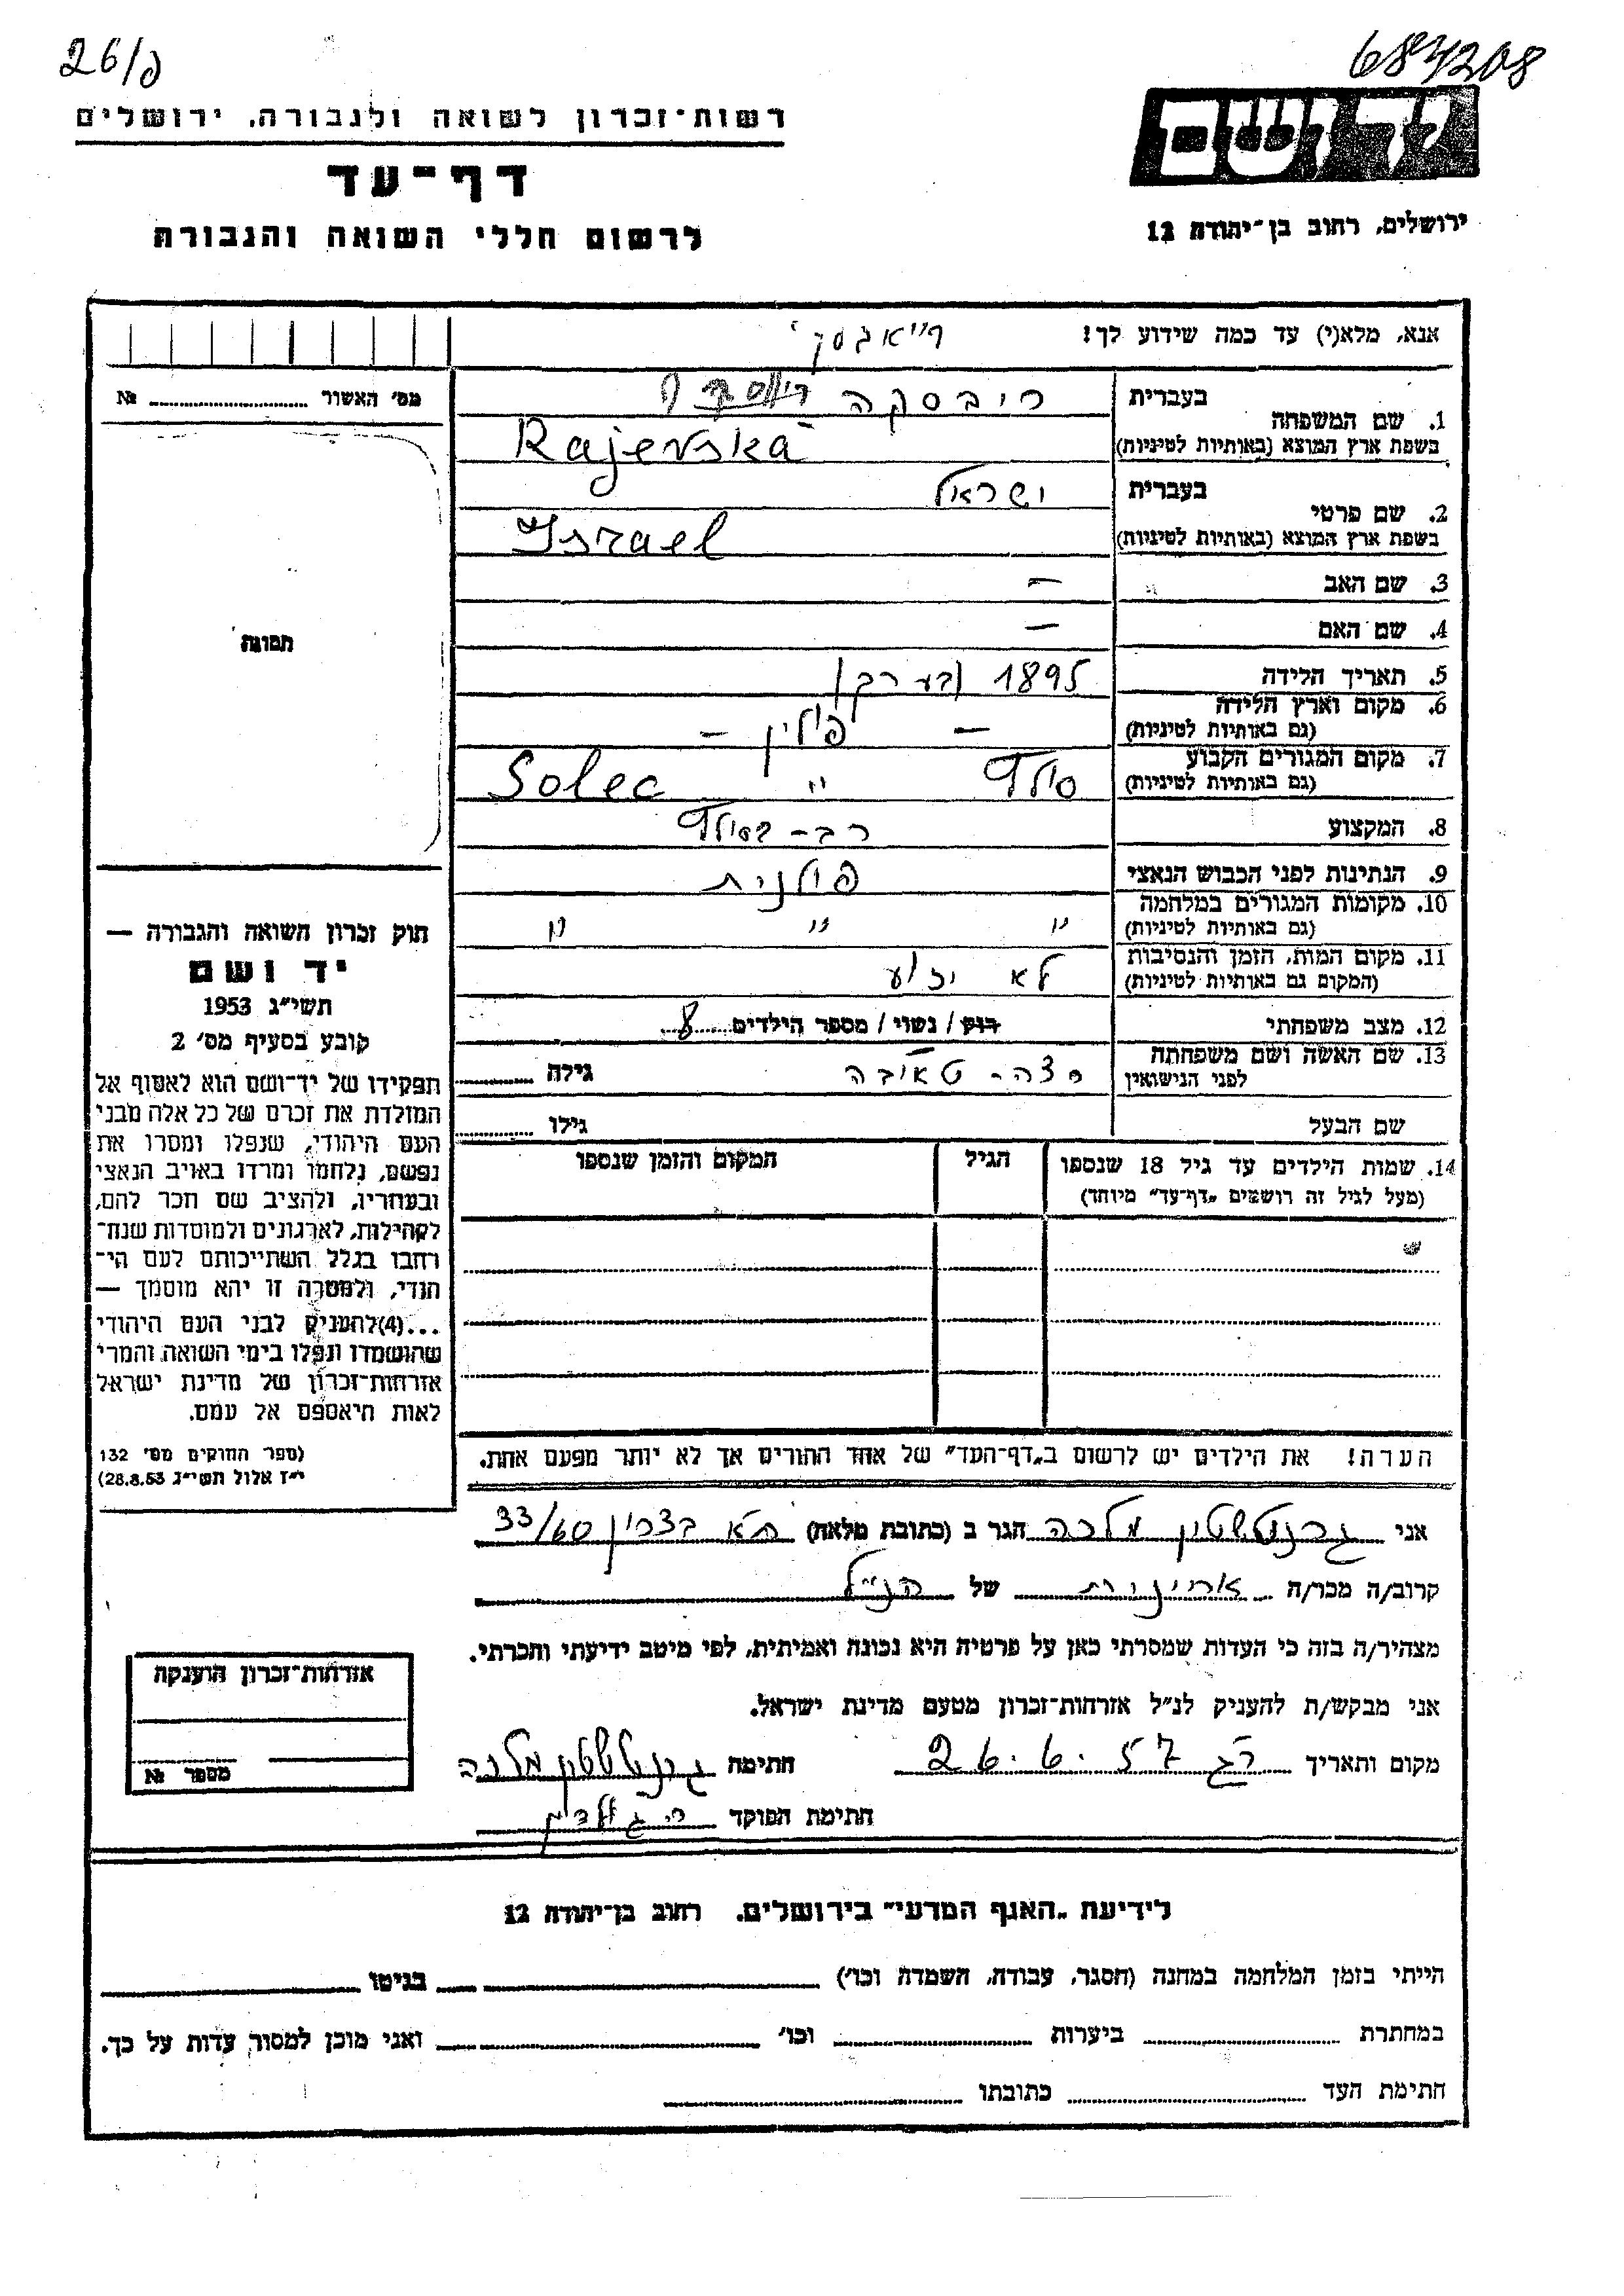 26/פ
684208
רשות־זכרון לשואה ולגבורה, ירושלים
יד ושם
דף־עד
ירושלים, רחוב בן־יהודה 12
לרשום חללי השואה והגבורה
אנא, מלא(י) עד כמה שידוע לך!
מס' האשור № ..........
1. שם המשפחה בעברית ריבסקה
בשפת ארץ המוצא (באותיות לטיניות) Rajevska
2. שם פרטי בעברית ישראל
בשפת ארץ המוצא (באותיות לטיניות) Israel
3. שם האב —
4. שם האם —
תמונה
5. תאריך הלידה 1895 (בערך)
6. מקום וארץ הלידה (גם באותיות לטיניות) — פולין —
7. מקום המגורים הקבוע (גם באותיות לטיניות) סולץ " Solec
8. המקצוע רב - בסולץ
9. הנתינות לפני הכבוש הנאצי פולנית
10. מקומות המגורים במלחמה (גם באותיות לטיניות) " " "
11. מקום המות, הזמן והנסיבות (המקום גם באותיות לטיניות) לא ידוע
12. מצב משפחתי רוק / נשוי / מספר הילדים 8
13. שם האשה ושם משפחתה לפני הנישואין טאובה גילה ..........
שם הבעל גילו ..........
14. שמות הילדים עד גיל 18 שנספו הגיל המקום והזמן שנספו
(מעל לגיל זה רושמים „דף־עד" מיוחד)
חוק זכרון השואה והגבורה —
יד ושם
תשי"ג 1953
קובע בסעיף מס' 2
תפקידו של יד־ושם הוא לאסוף אל
המולדת את זכרם של כל אלה מבני
העם היהודי, שנפלו ומסרו את
נפשם, נלחמו ומרדו באויב הנאצי
ובעוזריו, ולהציב שם וזכר להם,
לקהילות, לארגונים ולמוסדות שנח־
רבו בגלל השתייכותם לעם הי־
הודי, ולמטרה זו יהא מוסמך —
...(4)להעניק לבני העם היהודי
שהושמדו ונפלו בימי השואה והמרי
אזרחות־זכרון של מדינת ישראל
לאות היאספם אל עמם.
(ספר החוקים מס' 132
י"ז אלול תשי"ג 28.8.53)
הערה! את הילדים יש לרשום ב„דף־העד" של אחד ההורים אך לא יותר מפעם אחת.
אני גרנטשטיין מלכה הגר ב (כתובת מלאה) ת"א בצרון 33/60
קרוב/ה מכר/ה של הנ"ל
מצהיר/ה בזה כי העדות שמסרתי כאן על פרטיה היא נכונה ואמיתית, לפי מיטב ידיעתי והכרתי.
אני מבקש/ת להעניק לנ"ל אזרחות־זכרון מטעם מדינת ישראל.
מקום ותאריך ר"ג 26.6.57 חתימה גרנטשטיין מלכה
חתימת הפוקד
אזרחות־זכרון הוענקה
מספר №
לידיעת „האגף המדעי" בירושלים. רחוב בן־יהודה 12
הייתי בזמן המלחמה במחנה (הסגר, עבודה, השמדה וכו') .......... בגיטו ..........
במחתרת .......... ביערות .......... וכו' .......... ואני מוכן למסור עדות על כך.
חתימת העד .......... כתובתו ..........